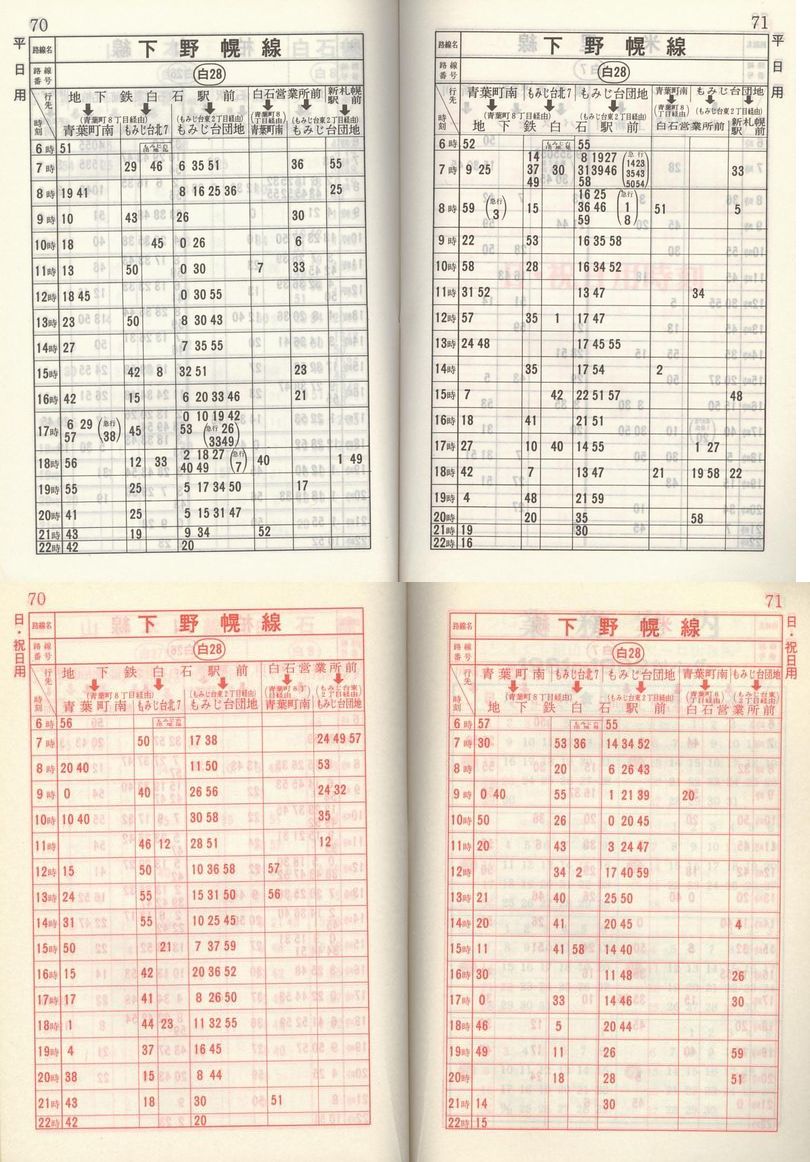 70
平日用
路線名 下野幌線
路線番号 白28
行先 時刻
地下鉄白石駅前 白石営業所前 新札幌駅前
(青葉町8丁目経由) (もみじ台東2丁目経由) (青葉町8丁目経由) (もみじ台東2丁目経由)
青葉町南 もみじ台北7 もみじ台団地 青葉町南 もみじ台団地
6時 51
7時 29 46 6 35 51 36 55
8時 19 41 8 16 25 36 25
9時 10 43 26 30
10時 18 45 0 26 6
11時 13 50 0 30 7 33
12時 18 45 0 30 55
13時 23 50 8 30 43
14時 27 7 35 55
15時 51 42 8 32 51 23
16時 42 15 6 20 33 46 21
17時 6 29 57 (急行 38) 45 0 10 19 42 53 (急行 26 33 49)
18時 56 12 33 2 18 27 40 49 (急行 7) 40 1 49
19時 55 25 5 17 34 50 17
20時 41 25 5 15 31 47
21時 43 19 9 34 52
22時 42 20
71
平日用
路線名 下野幌線
路線番号 白28
行先 時刻
青葉町南 もみじ台北7 もみじ台団地 青葉町南 もみじ台団地
(青葉町8丁目経由) (もみじ台東2丁目経由) (青葉町8丁目経由) (もみじ台東2丁目経由)
地下鉄白石駅前 白石営業所前 新札幌駅前
6時 52 55
7時 9 25 14 37 49 30 8 19 27 31 39 46 58 (急行 14 23 35 43 50 54) 33
8時 59 (急行 3) 15 16 25 36 46 59 (急行 1 8) 51 5
9時 22 53 16 35 58
10時 58 28 16 34 52
11時 31 52 13 47 34
12時 57 35 1 17 47
13時 24 48 17 45 55
14時 35 17 54 2
15時 7 42 22 51 57 48
16時 18 41 21 51
17時 27 10 40 14 55 1 27
18時 42 7 13 47 21 19 58 22
19時 4 48 21 59
20時 20 35 58
21時 19 30
22時 16
70
日・祝日用
路線名 下野幌線
路線番号 白28
行先 時刻
地下鉄白石駅前 白石営業所前
(青葉町8丁目経由) (もみじ台東2丁目経由) (青葉町8丁目経由) (もみじ台東2丁目経由)
青葉町南 もみじ台北7 もみじ台団地 青葉町南 もみじ台団地
6時 56
7時 50 17 38 24 49 57
8時 20 40 11 50 53
9時 0 40 26 56 24 32
10時 10 40 30 58 35
11時 46 12 28 51 12
12時 15 50 10 36 58 57
13時 24 55 15 31 50 56
14時 31 55 10 25 45
15時 50 21 7 37 59
16時 15 42 20 36 52
17時 17 41 8 26 50
18時 1 44 23 11 32 55
19時 4 37 16 45
20時 38 15 8 44
21時 43 18 30 51
22時 42 20
71
日・祝日用
路線名 下野幌線
路線番号 白28
行先 時刻
青葉町南 もみじ台北7 もみじ台団地 青葉町南 もみじ台団地
(青葉町8丁目経由) (もみじ台東2丁目経由) (青葉町8丁目経由) (もみじ台東2丁目経由)
地下鉄白石駅前 白石営業所前
6時 57 55
7時 30 53 36 14 34 52
8時 20 6 26 43
9時 0 40 55 1 21 39 20
10時 50 26 0 20 45
11時 20 43 3 24 47
12時 34 2 17 40 59
13時 21 40 25 50
14時 20 41 20 45 4
15時 11 41 58 14 40
16時 30 11 48 26
17時 0 33 14 46 30
18時 46 5 20 44
19時 49 11 26 59
20時 18 28 51
21時 14 30
22時 15